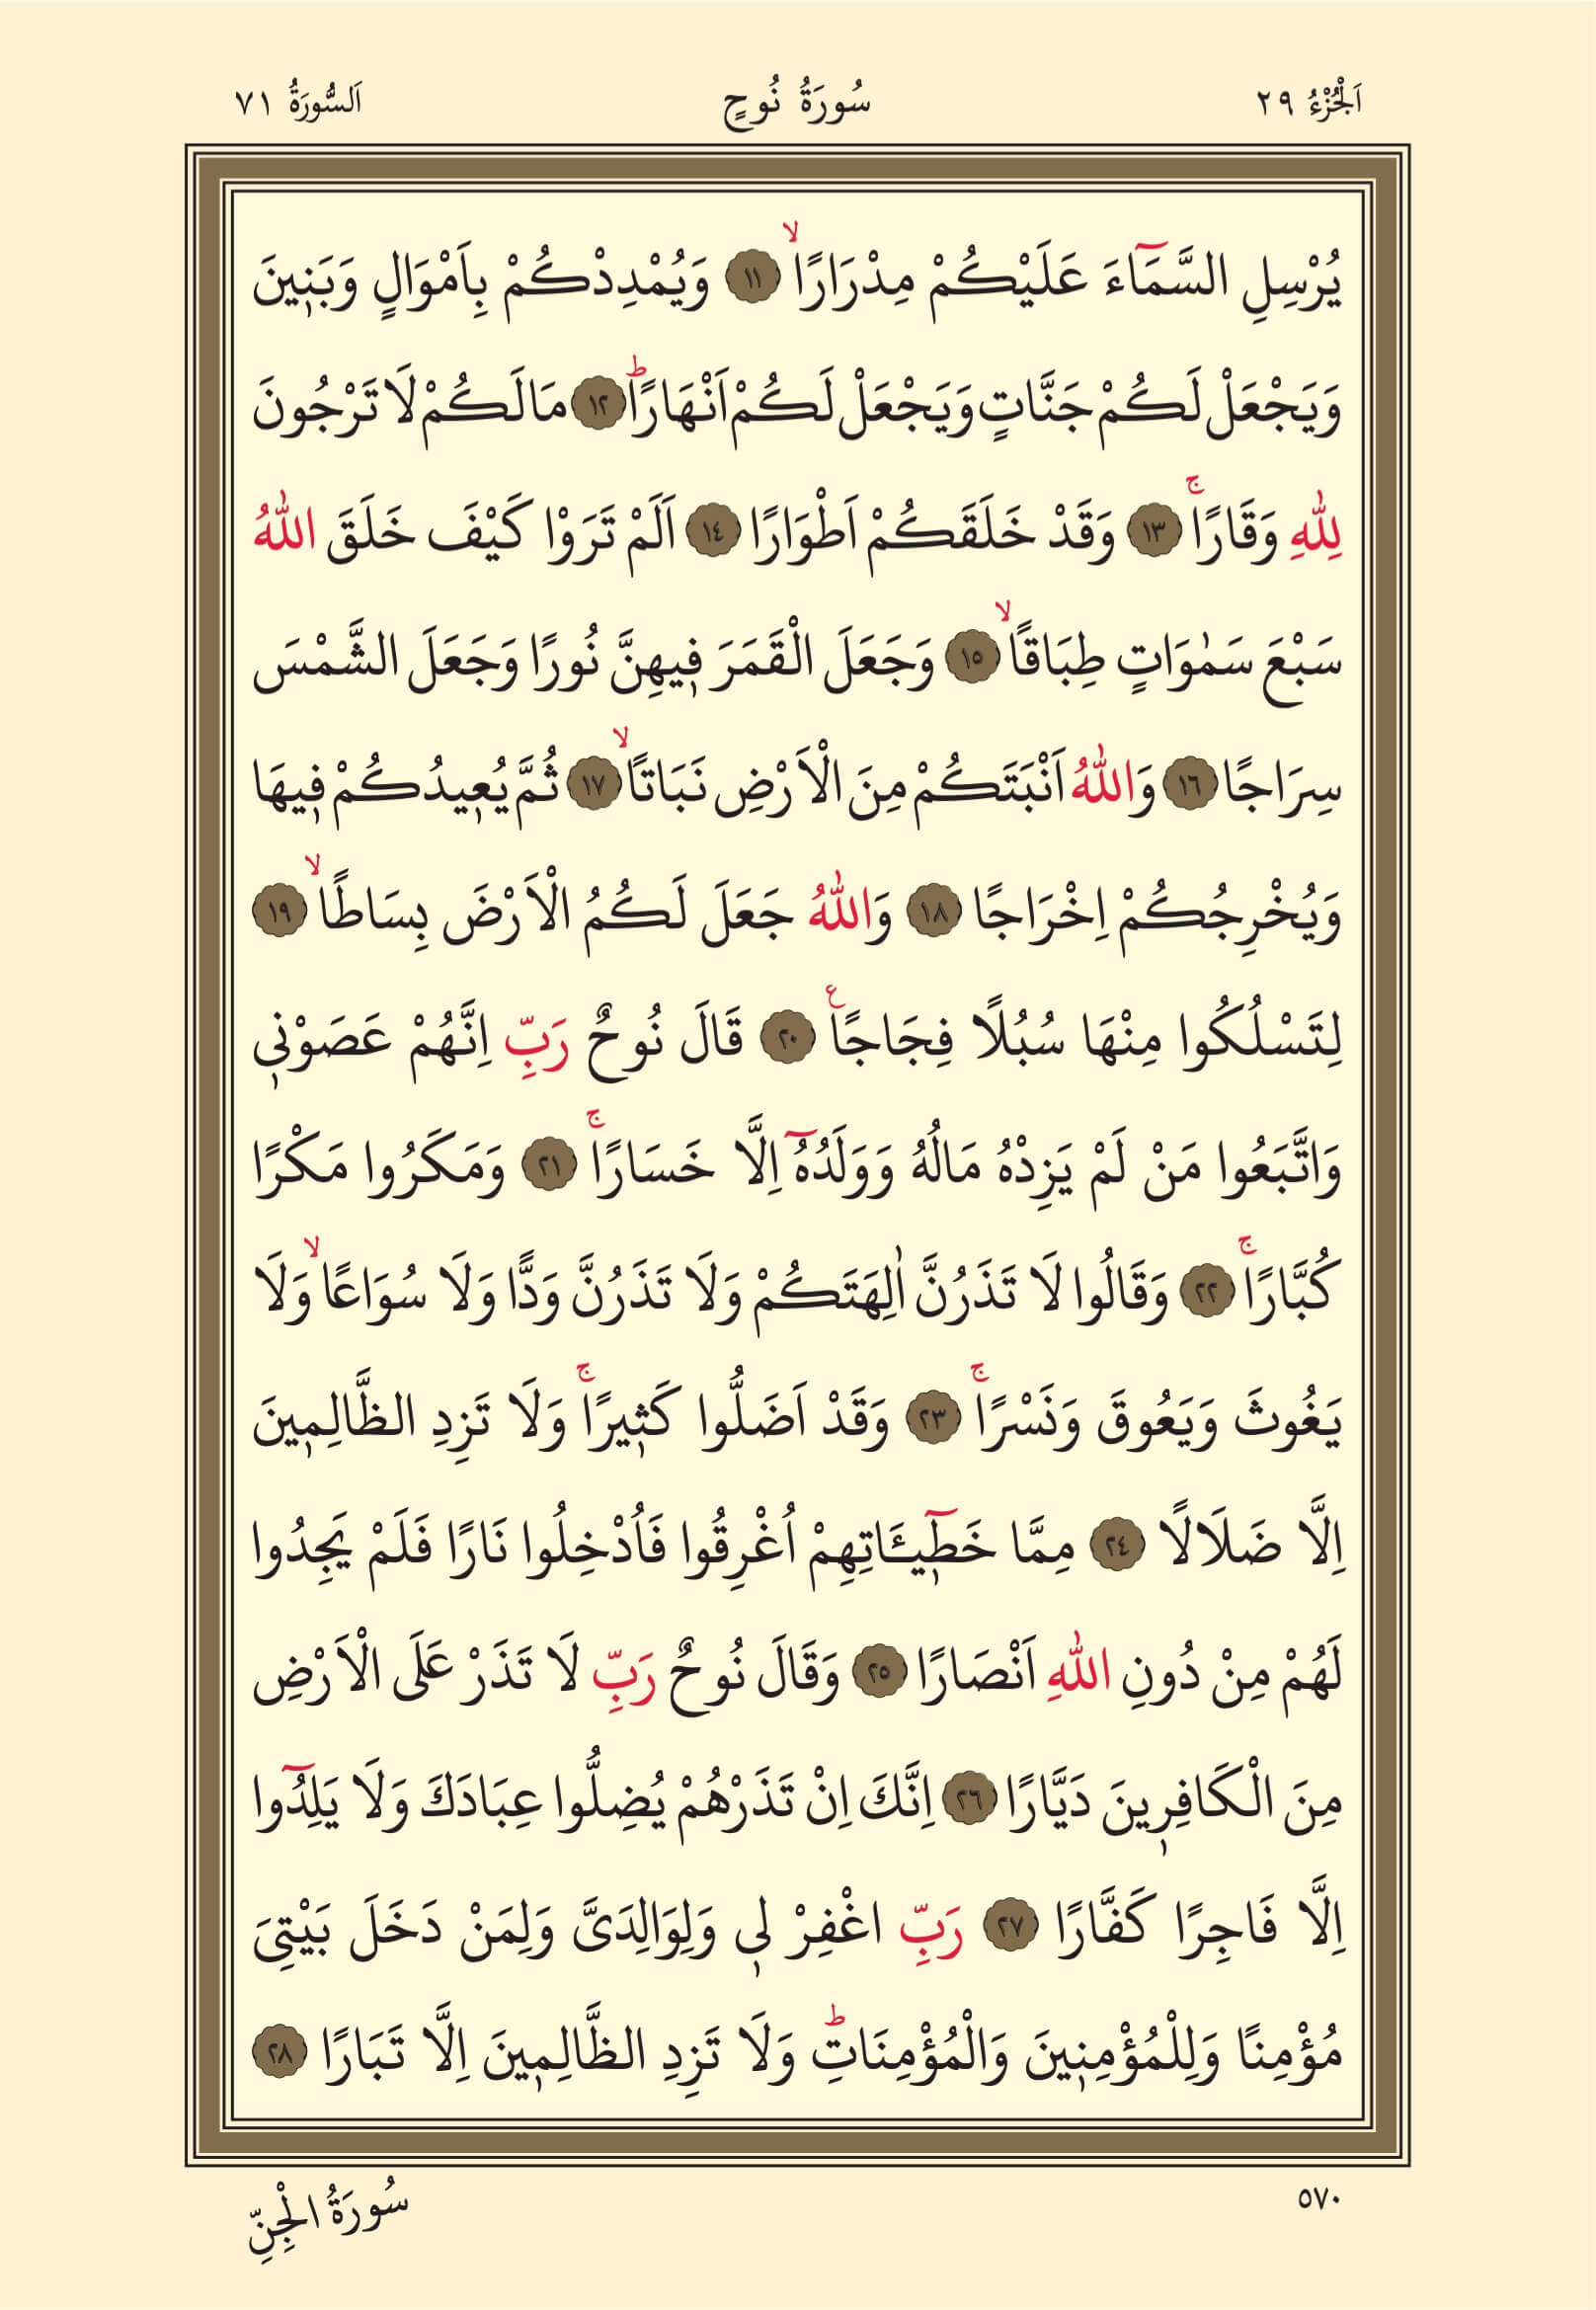 اَلْجُزْءُ ٢٩ سُورَةُ نُوحٍ اَلسُّورَةُ ٧١
يُرْسِلِ السَّمَٓاءَ عَلَيْكُمْ مِدْرَارًاۙ ١١ وَيُمْدِدْكُمْ بِاَمْوَالٍ وَبَن۪ينَ
وَيَجْعَلْ لَكُمْ جَنَّاتٍ وَيَجْعَلْ لَكُمْ اَنْهَارًاۜ ١٢ مَا لَكُمْ لَا تَرْجُونَ
لِلّٰهِ وَقَارًاۚ ١٣ وَقَدْ خَلَقَكُمْ اَطْوَارًا ١٤ اَلَمْ تَرَوْا كَيْفَ خَلَقَ اللّٰهُ
سَبْعَ سَمٰوَاتٍ طِبَاقًاۙ ١٥ وَجَعَلَ الْقَمَرَ ف۪يهِنَّ نُورًا وَجَعَلَ الشَّمْسَ
سِرَاجًا ١٦ وَاللّٰهُ اَنْبَتَكُمْ مِنَ الْاَرْضِ نَبَاتًاۙ ١٧ ثُمَّ يُع۪يدُكُمْ ف۪يهَا
وَيُخْرِجُكُمْ اِخْرَاجًا ١٨ وَاللّٰهُ جَعَلَ لَكُمُ الْاَرْضَ بِسَاطًاۙ ١٩
لِتَسْلُكُوا مِنْهَا سُبُلًا فِجَاجًاع ٢٠ قَالَ نُوحٌ رَبِّ اِنَّهُمْ عَصَوْن۪ي
وَاتَّبَعُوا مَنْ لَمْ يَزِدْهُ مَالُهُ وَوَلَدُهُٓ اِلَّا خَسَارًاۚ ٢١ وَمَكَرُوا مَكْرًا
كُبَّارًاۚ ٢٢ وَقَالُوا لَا تَذَرُنَّ اٰلِهَتَكُمْ وَلَا تَذَرُنَّ وَدًّا وَلَا سُوَاعًاۙ وَلَا
يَغُوثَ وَيَعُوقَ وَنَسْرًاۚ ٢٣ وَقَدْ اَضَلُّوا كَث۪يرًاۚ وَلَا تَزِدِ الظَّالِم۪ينَ
اِلَّا ضَلَالًا ٢٤ مِمَّا خَط۪ٓيـَٔاتِهِمْ اُغْرِقُوا فَاُدْخِلُوا نَارًا فَلَمْ يَجِدُوا
لَهُمْ مِنْ دُونِ اللّٰهِ اَنْصَارًا ٢٥ وَقَالَ نُوحٌ رَبِّ لَا تَذَرْ عَلَى الْاَرْضِ
مِنَ الْكَافِر۪ينَ دَيَّارًا ٢٦ اِنَّكَ اِنْ تَذَرْهُمْ يُضِلُّوا عِبَادَكَ وَلَا يَلِدُٓوا
اِلَّا فَاجِرًا كَفَّارًا ٢٧ رَبِّ اغْفِرْ ل۪ي وَلِوَالِدَيَّ وَلِمَنْ دَخَلَ بَيْتِيَ
مُؤْمِنًا وَلِلْمُؤْمِن۪ينَ وَالْمُؤْمِنَاتِۜ وَلَا تَزِدِ الظَّالِم۪ينَ اِلَّا تَبَارًا ٢٨
٥٧٠ سُورَةُ الْجِنِّ